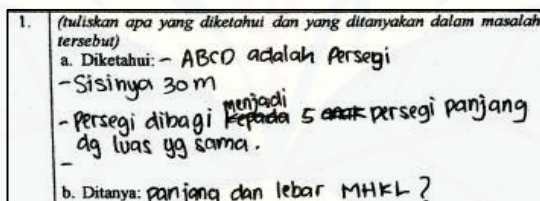 1. (tuliskan apa yang diketahui dan yang ditanyakan dalam masalah
tersebut)
a. Diketahui: - ABCD adalah Persegi
- Sisinya 30 m
- Persegi dibagi menjadi 5 persegi panjang
dg luas yg sama.
-
b. Ditanya: panjang dan lebar MHKL ?